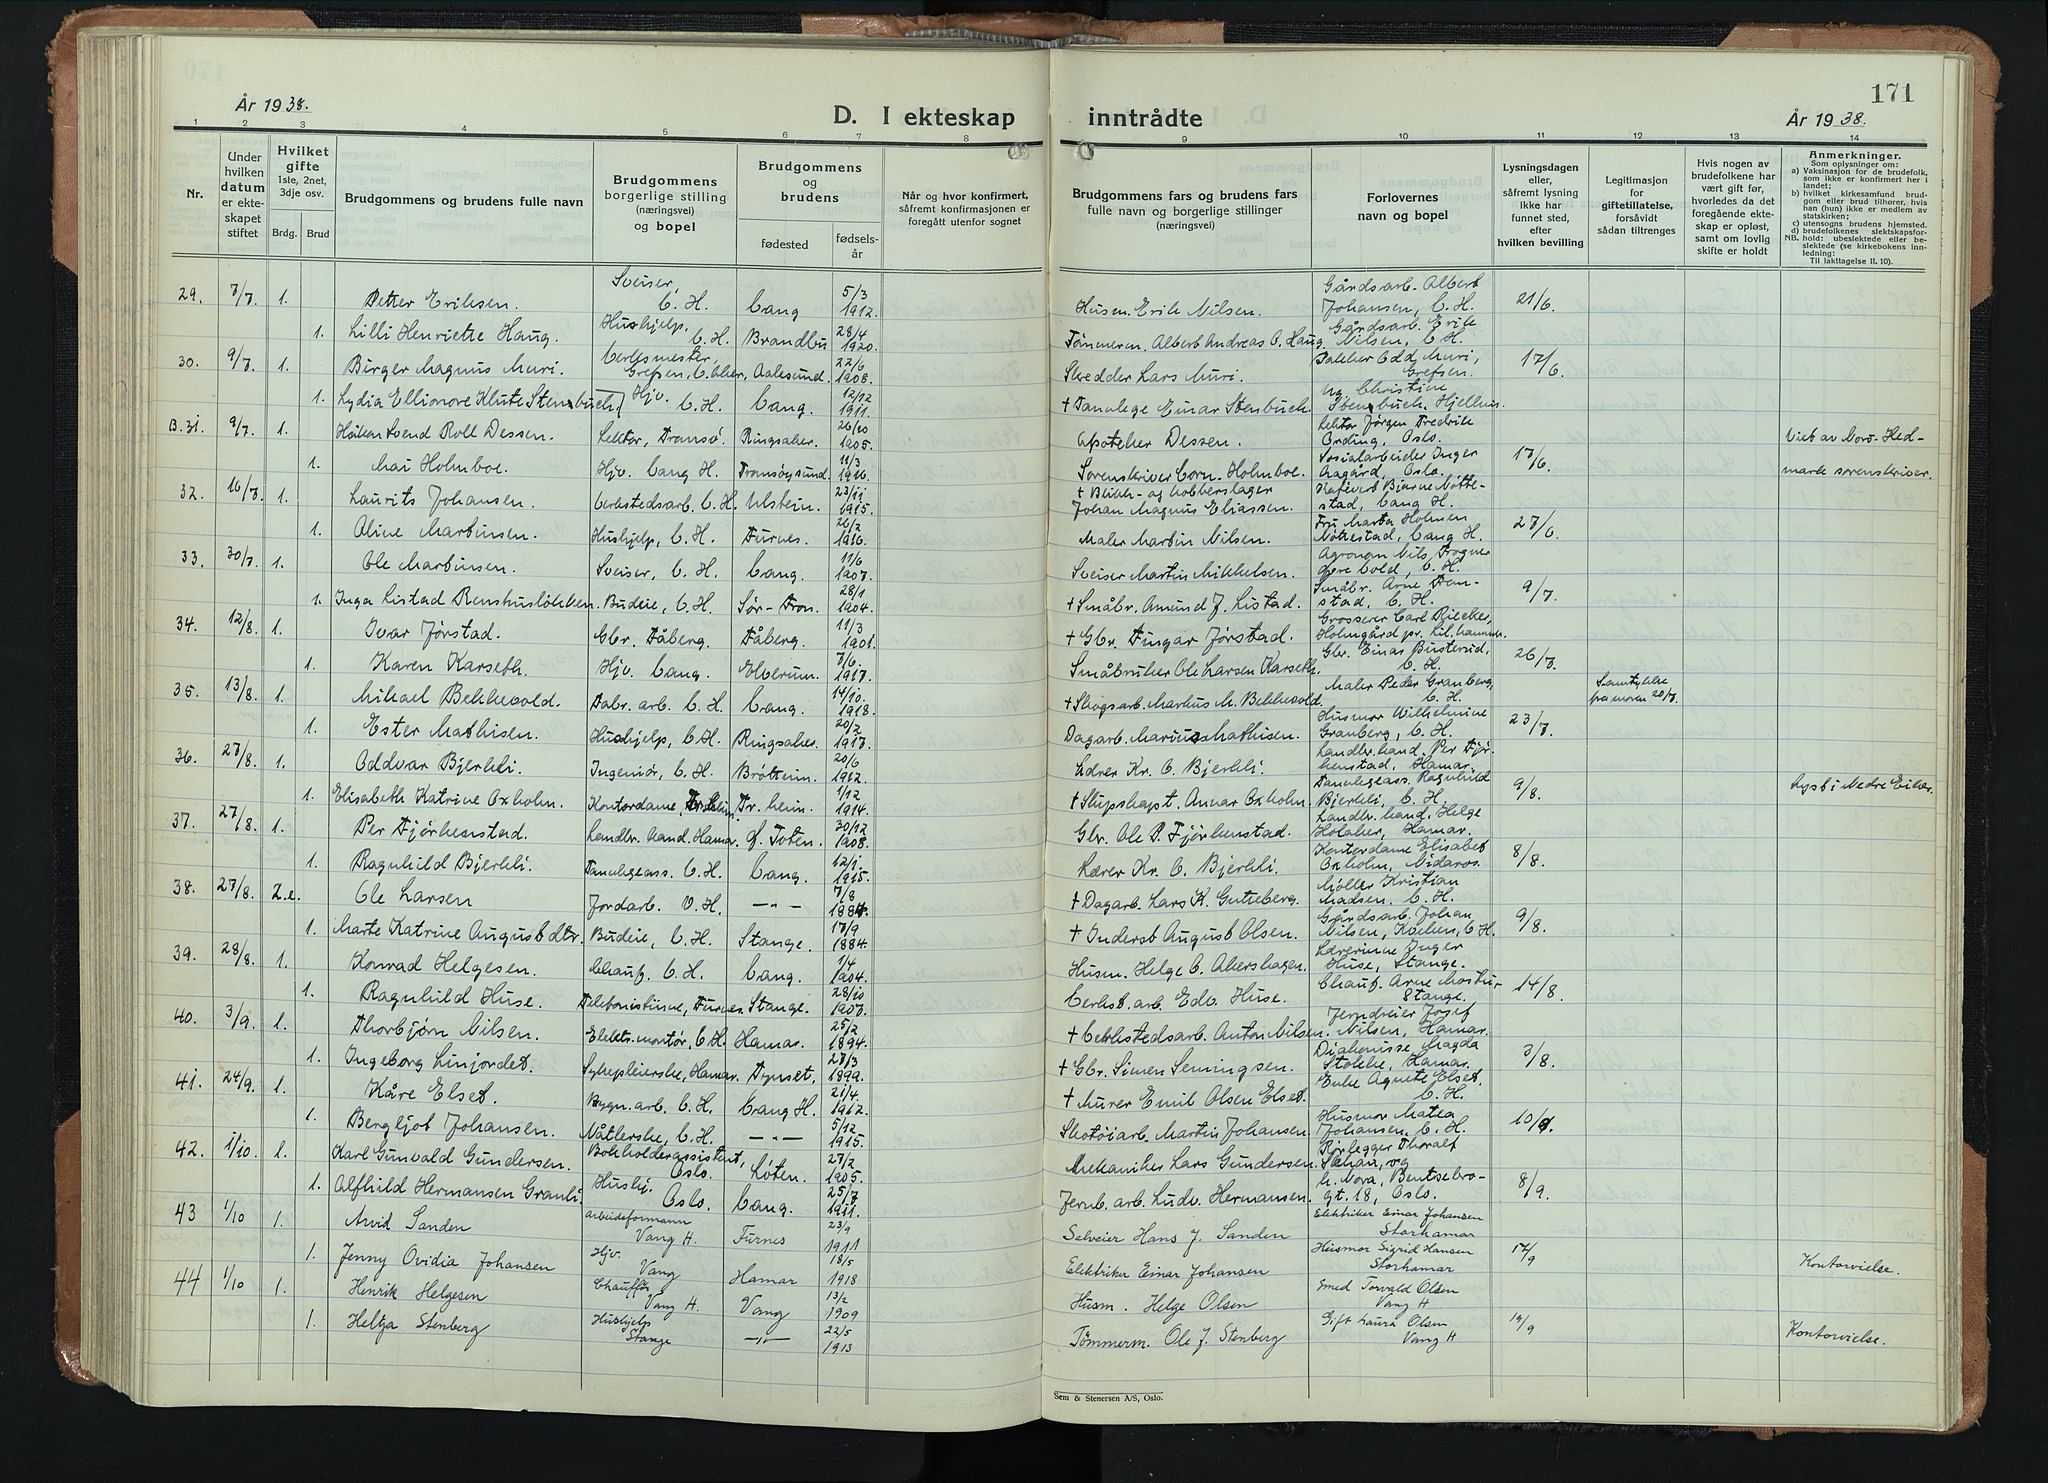 170
171
År 1938.
D. I ekteskap inntrådte
År 1938.
1 2 3 4 5 6 7 8 9 10 11 12 13 14
Nr.
Under hvilken datum er ekteskapet stiftet
Hvilket gifte 1ste, 2net, 3dje osv.
Brdg. Brud
Brudgommens og brudens fulle navn
Brudgommens borgerlige stilling (næringsvei) og bopel
Brudgommens og brudens
fødested
fødselsår
Når og hvor konfirmert, såfremt konfirmasjonen er foregått utenfor sognet
Brudgommens fars og brudens fars fulle navn og borgerlige stillinger (næringsvei)
Forlovernes navn og bopel
Lysningsdagen eller, såfremt lysning ikke har funnet sted, efter hvilken bevilling
Legitimasjon for giftetillatelse, forsåvidt sådan tiltrenges
Hvis nogen av brudefolkene har vært gift før, hvorledes da det foregående ekteskap er opløst, samt om lovlig skifte er holdt
Anmerkninger.
Som oplysninger om:
a) Vaksinasjon for de brudefolk, som ikke er konfirmert her i landet;
b) hvilket kirkesamfund brudgom eller brud tilhører, hvis han (hun) ikke er medlem av statskirken;
c) utensogns brudens hjemsted.
d) brudefolkenes slektskapsforhold: ubeslektede eller beslektede (se kirkebokens innledning:
NB. Til iakttagelse II. 10).
29. 7/7. 1. Petter Eriksen. Sveiser, V. H. Vang 5/3 1912. Husm. Erik Nilsen. Gårdsarb. Albert Johansen, V. H. 21/6
1. Lilli Henriette Haug. Hushjelp, V. H. Brandbu 28/4 1920. Tømmerm. Albert Andreas O. Haug. Gårdsarb. Erik Nilsen, V. H.
30. 9/7. 1. Birger Magnus Muri. Verksmester, Grefsen, V. Aker, Aalesund. 22/6 1908. Skredder Lars Muri. Pakker Odd Muri, Grefsen. 17/6.
1. Lydia Ellionore Klute Stenbuch. Hjv. V. H. Vang. 12/12 1911. † Tannlege Einar Stenbuch. og Christine Stenbuch, Hjellum.
B. 31. 9/7. 1. Håkon Svend Roll Dessen. Lektor, Tromsø. Ringsaker. 26/10 1905. Apoteker Dessen. Lektor Jørgen Fredrik Ording, Oslo. 17/6. Viet av Nord-Hed-
1. Mai Holmboe. Hjv. Vang H. Tromsøysund. 11/3 1916. Sorenskriver Corn. Holmboe. Sosialarbeider Inger Aagård, Oslo. mark sorenskriver.
32. 16/7. 1. Laurits Johansen. Verkstedsarb. V. H. Ulstein. 23/11 1915. † Blikk- og kobberslager Johan Magnus Eliassen. Kafévert Bjarne Nøttestad, Vang H. 27/6
1. Aline Martinsen. Hushjelp, V. H. Furnes. 26/2 1916. Maler Martin Nilsen. Fru Marta Holmen Nøttestad, Vang H.
33. 30/7. 1. Ole Martinsen. Sveiser, V. H. Vang. 11/6 1907. Sveiser Martin Mikkelsen. Agronom Nils Frogner øvre Vold, V. H. 9/7
1. Inga Listad Renshusløkken. Budeie, V. H. Sør-Fron. 28/1 1904. † Småbr. Amund J. Listad. Småbr. Arne Frenstad, V. H.
34. 12/8. 1. Ivar Jørstad. Gbr. Fåberg. Fåberg. 11/3 1901. † Gbr. Fingar Jørstad. Grosserer Carl Riecker, Holmgård pr. Lillehammer. 26/7
1. Karen Karseth. Hjv. Vang. Elverum. 7/6 1917. Småbruker Ole Larsen Karseth. Gbr. Einar Busterud, V. H.
35. 13/8. 1. Mikael Bekkevold. Fabr. arb. V. H. Vang. 14/10 1918. † Skogsarb. Markus M. Bekkevold. Maler Peder Granberg, V. H. 23/7 Samtykke fra moren 20/7
1. Ester Mathisen. Hushjelp, V. H. Ringsaker. 20/2 1917. Dagarb. Marius Mathisen. Husmor Wilhelmine Granberg, V. H.
36. 27/8. 1. Oddvar Bjerkli. Ingeniør, V. H. Brøttum. 20/6 1912. Lærer Kr. O. Bjerkli. Landbr. kand. Per Fjørkenstad, Hamar. 9/8. Lyst i Nedre Eiker.
1. Elisabeth Katrine Oxholm. Kontordame, Tr.heim. Tr. heim. 1/12 1914. † Skipskapt. Annar Oxholm. Tannlegeass. Ragnhild Bjerkli, V. H.
37. 27/8. 1. Per Fjørkenstad. Landbr. kand. Hamar. Ø. Toten. 30/12 1908. Gbr. Ole P. Fjørkenstad. Landbr. kand. Helge Holaker, Hamar. 8/8.
1. Ragnhild Bjerkli. Tannlegeass. V. H. Vang. 12/1 1915. Lærer Kr. O. Bjerkli. Kontordame Elisabet Oxholm, Nidaros.
38. 27/8. 2.e. Ole Larsen Jordarb. V. H. —„— 7/8 1884. † Dagarb. Lars K. Guteberg. Møller Kristian Madsen. V. H. 9/8.
1. Marte Katrine Augustdtr. Budeie, V. H. Stange. 17/9 1884. † Inderst August Olsen. Gårdsarb. Johan Nilsen, Kaslien, V. H.
39. 28/8. 1. Konrad Helgesen. Chauf. V. H. Vang. 1/4 1904. Husm. Helge O. Akershagen. Lærerinne Inger Huse, Stange. 14/8.
1. Ragnhild Huse. Telefonistinne, Furnes. Stange. 28/10 1907. Verkst. arb. Edv. Huse. Chauf. Arne Mostue Stange.
40. 3/9. 1. Thorbjørn Nilsen. Elektr. montør, V. H. Hamar. 25/2 1894. † Verkstedsarb. Anton Nilsen. Jerndreier Josef Nilsen, Hamar. 3/8.
1. Ingeborg Linjordet. Sykepleierske, Hamar. Tynset. 27/3 1899. † Gbr. Simen Semingsen. Diakonisse Magda Stokke, Hamar.
41. 24/9. 1. Kåre Elset. Bygn. arb. V. H. Vang H. 21/4 1912. † Murer Emil Olsen Elset. Enke Agnete Elset. V. H. 10/9.
1. Bergljot Johansen. Nåtlerske, V. H. —„— 5/12 1915. Skotøiarb. Martin Johansen. Husmor Matea Johansen. V. H.
42. 1/10. 1. Karl Gunvald Gundersen. Bokholderassistent, Oslo. Løten. 27/2 1905. Mekaniker Lars Gundersen. Rørlegger Thoralf Stahan, og 8/9.
1. Alfhild Hermansen Granli. Hushj. Oslo. Vang. 25/7 1911. Jernb. arb. Ludv. Hermansen. h. Nora, Bentsebrogt. 18, Oslo.
43 1/10 1. Arvid Sanden arbeidsformann Vang H. Furnes 23/9 1911 Selveier Hans J. Sanden Elektriker Einar Johansen Storhamar 17/9
1. Jenny Ovidia Johansen Hjv. Vang Hamar 18/5 1918 Elektriker Einar Johansen Husmor Sigrid Hansen Storhamar Kontorvielse.
44 1/10 1. Henrik Helgesen Chauffør Vang H. Vang 13/2 1909 Husm. Helge Olsen Smed Torvald Olsen Vang H 19/9
1. Heltja Stenberg Hushjelp Stange —„— 22/5 1913 Tømmerm. Ole J. Stenberg Gift Laura Olsen Vang H Kontorvielse.
Sem & Stenersen A/S, Oslo.